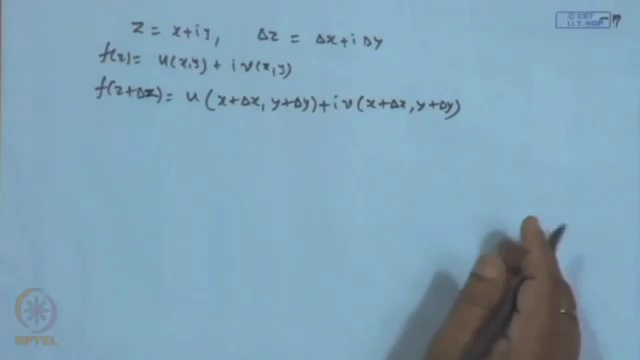 © CET
I.I.T. KGP
z = x+iy, Δz = Δx+i Δy
f(z) = u(x,y) + i v(x,y)
f(z+Δz) = u(x+Δx, y+Δy) + i v(x+Δx, y+Δy)
NPTEL